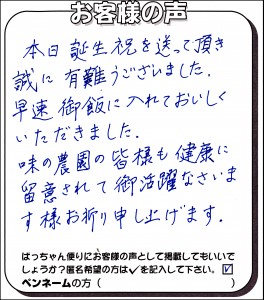 お客様の声
本日誕生祝を送って頂き
誠に有難うございました.
早速御飯に入れておいしく
いただきました.
味の農園の皆様も健康に
留意されて御活躍なさいま
す様お祈り申し上げます.
ぱっちゃん便りにお客様の声として掲載してもいいで
しょうか?匿名希望の方は✓を記入して下さい。☑
ペンネームの方（　　　　　）